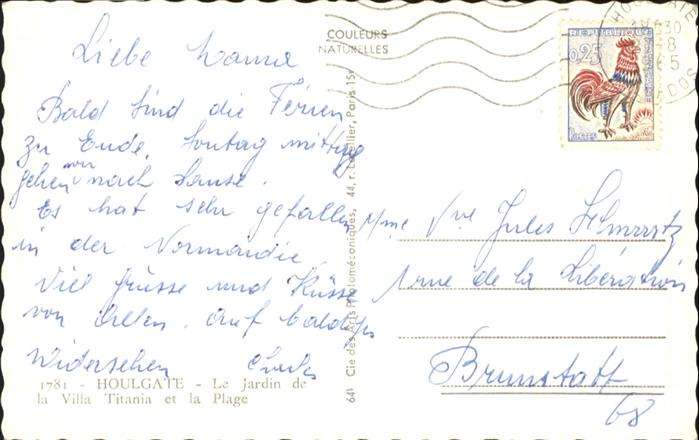 COULEURS
NATURELLES
HOULGATE
0,25
Liebe
Bald sind die Ferien
zu Ende. Sontag mittag
gehen wir nach Hause.
Es hat sehr gefallen
in der Normandie
Viel Grüsse und Küsse
von Allen. Auf baldiges
Widersehen
1781 - HOULGATE - Le Jardin de
la Villa Titania et la Plage
641 Cie des Arts Photomécaniques, 44, r. Letellier, Paris 15e
Mme Vve Jules Schwartz
1 rue de la Libération
Brunstatt
68